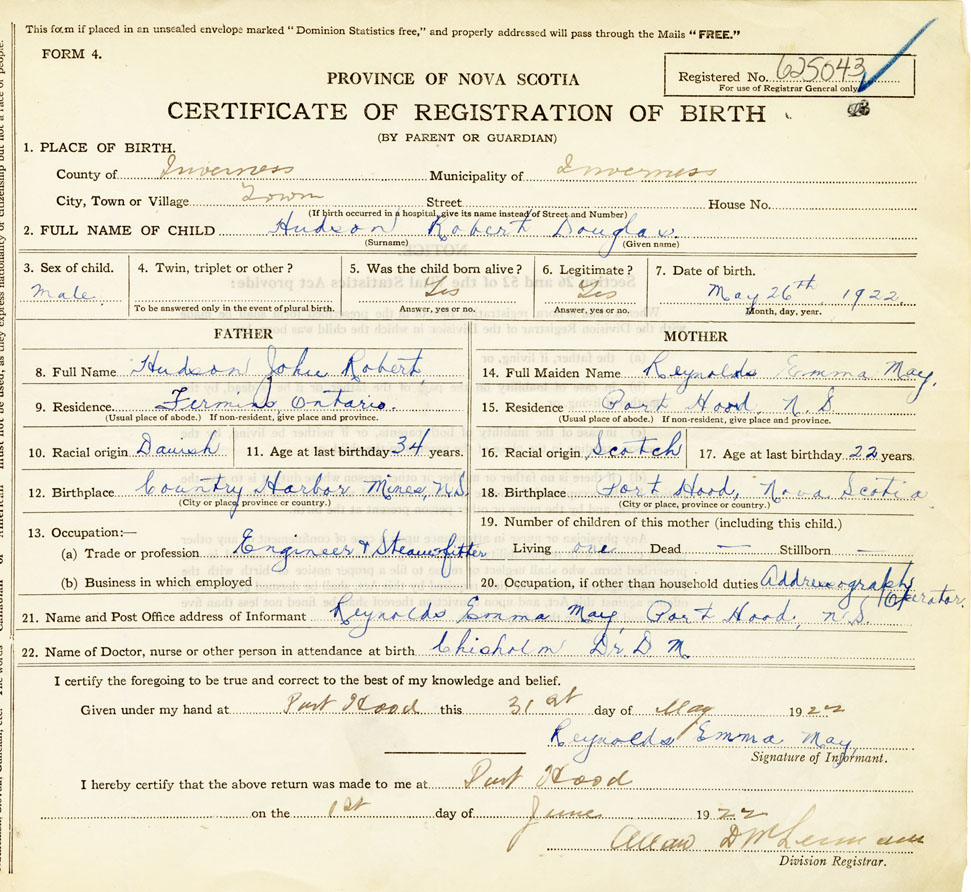 This form if placed in an unsealed envelope marked "Dominion Statistics free," and properly addressed will pass through the Mails "FREE."
FORM 4.
Registered No. 625043
For use of Registrar General only
PROVINCE OF NOVA SCOTIA
CERTIFICATE OF REGISTRATION OF BIRTH
(BY PARENT OR GUARDIAN)
1. PLACE OF BIRTH.
County of Inverness Municipality of Inverness
City, Town or Village Town Street House No.
(If birth occurred in a hospital, give its name instead of Street and Number)
2. FULL NAME OF CHILD Hudson Robert Douglas.
(Surname) (Given name)
3. Sex of child. 4. Twin, triplet or other? 5. Was the child born alive? 6. Legitimate? 7. Date of birth.
Male. Yes Yes May 26th, 1922
To be answered only in the event of plural birth. Answer, yes or no. Answer, yes or no. Month, day, year.
FATHER MOTHER
8. Full Name Hudson John Robert 14. Full Maiden Name Reynolds Emma May.
9. Residence Ontario. 15. Residence Port Hood. N.S.
(Usual place of abode.) If non-resident, give place and province. (Usual place of abode.) If non-resident, give place and province.
10. Racial origin Danish 11. Age at last birthday 34 years. 16. Racial origin Scotch 17. Age at last birthday 22 years.
12. Birthplace Country Harbor Mines, N.S. 18. Birthplace Port Hood, Nova Scotia
(City or place, province or country.) (City or place, province or country.)
13. Occupation:— 19. Number of children of this mother (including this child.)
(a) Trade or profession Engineer & Steamfitter Living one Dead — Stillborn —
(b) Business in which employed 20. Occupation, if other than household duties Addressograph Operator.
21. Name and Post Office address of Informant Reynolds Emma May, Port Hood, N.S.
22. Name of Doctor, nurse or other person in attendance at birth Chisholm Dr D M.
I certify the foregoing to be true and correct to the best of my knowledge and belief.
Given under my hand at Port Hood this 31st day of May 1922
Reynolds Emma May
Signature of Informant.
I hereby certify that the above return was made to me at Port Hood
on the 1st day of June 1922
Division Registrar.